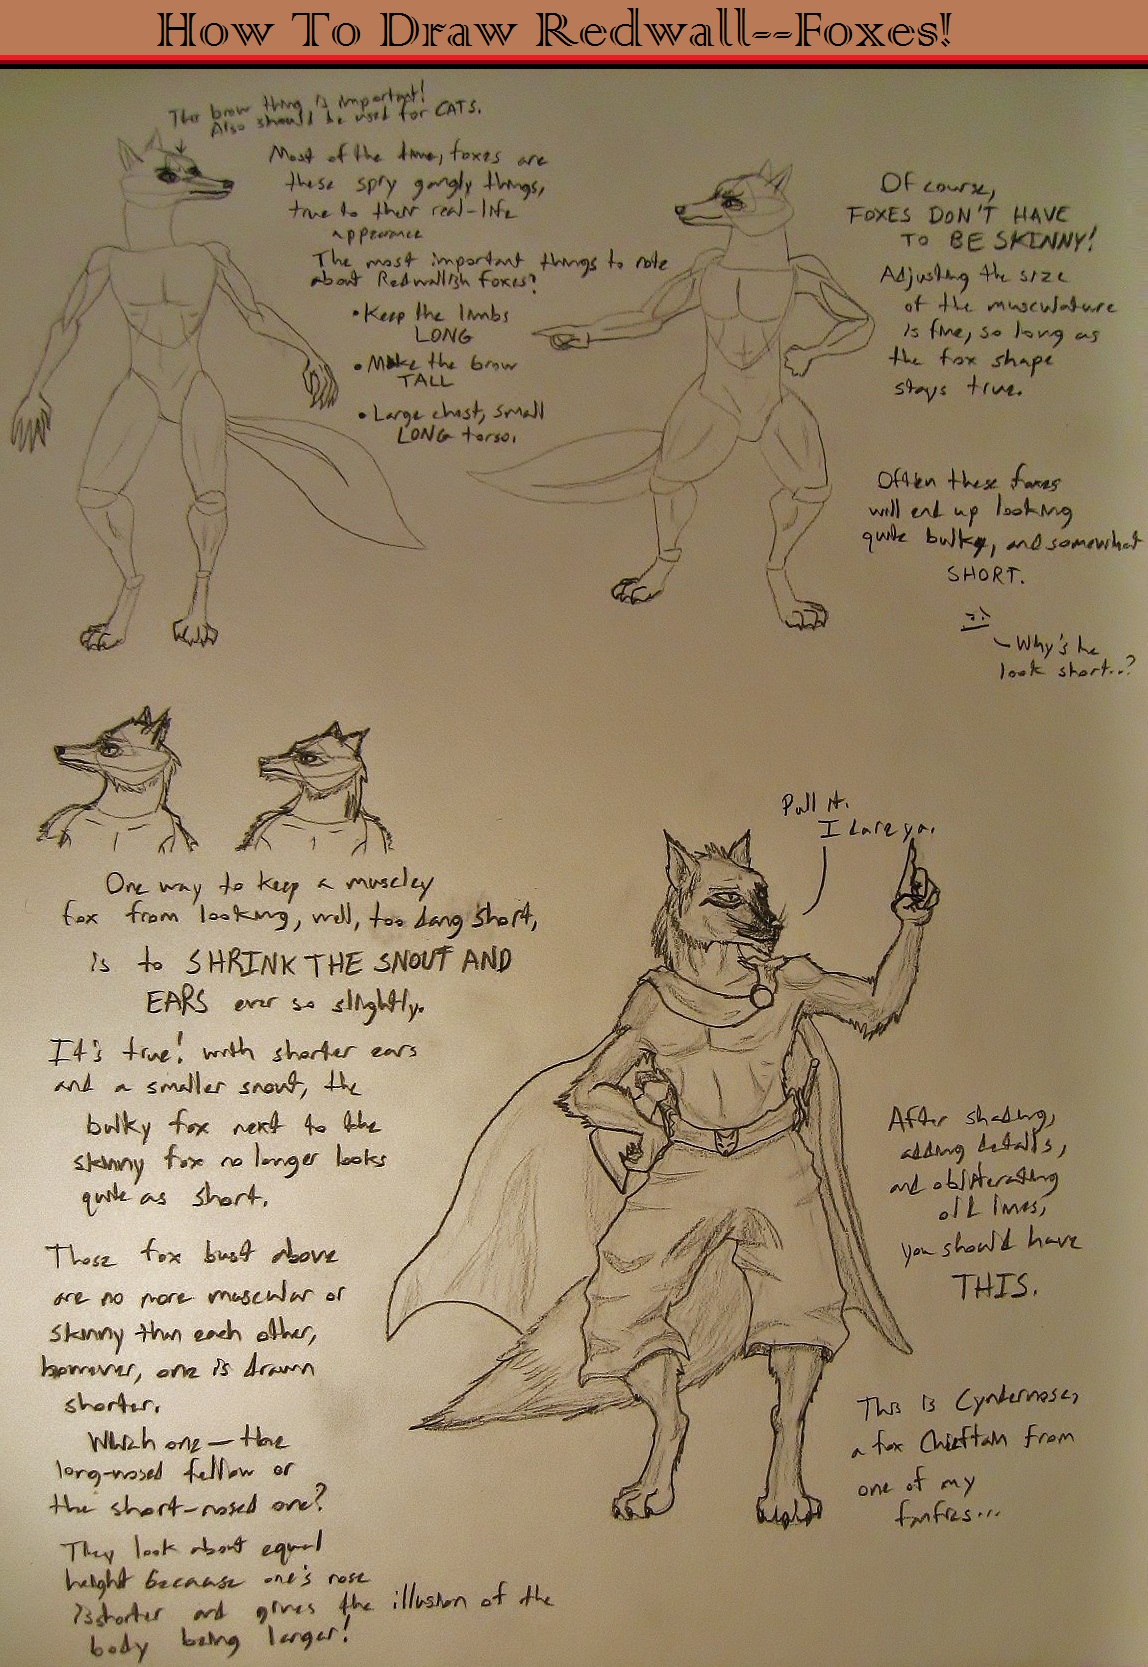 How To Draw Redwall--Foxes!
The brow thing is important!
Also should be used for CATS.
Most of the time, foxes are
these spry gangly things,
true to their real-life
appearance
The most important things to note
about Redwallish foxes?
•Keep the limbs
LONG
•Make the brow
TALL
•Large chest, small
LONG torso.
Of course,
FOXES DON'T HAVE
TO BE SKINNY!
Adjusting the size
of the musculature
is fine, so long as
the fox shape
stays true.
Often these foxes
will end up looking
quite bulky, and somewhat
SHORT.
- Why's he
look short..?
One way to keep a muscley
fox from looking, well, too dang short,
is to SHRINK THE SNOUT AND
EARS ever so slightly.
It's true! with shorter ears
and a smaller snout, the
bulky fox next to the
skinny fox no longer looks
quite as short.
Those fox bust above
are no more muscular or
skinny than each other,
however, one is drawn
shorter.
Which one — the
long-nosed fellow or
the short-nosed one?
They look about equal
height because one's nose
is shorter and gives the illusion of the
body being larger!
Pull it.
I dare ya.
After shading,
adding details,
and obliterating
old lines,
you should have
THIS.
This is Cyndernose,
a fox Chieftain from
one of my
fanfics...